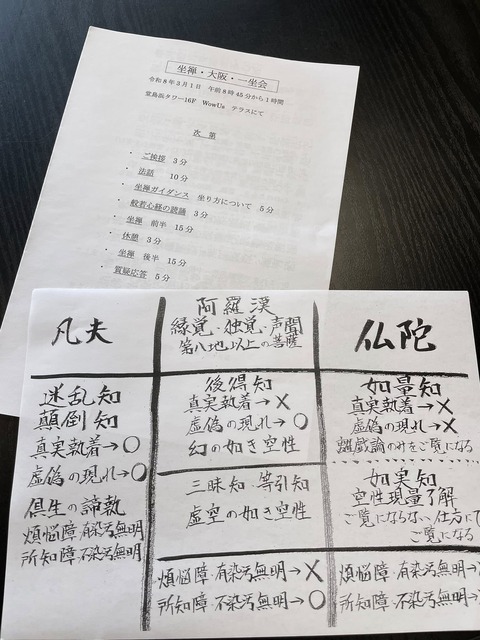 坐禅・大阪・一坐会
令和8年3月1日 午前8時45分から1時間
堂島浜タワー16F WowUs テラスにて
次 第
・ ご挨拶 3分
・ 法話 10分
・ 坐禅ガイダンス 坐り方について 5分
・ 般若心経の読誦 3分
・ 坐禅 前半 15分
・ 休憩 3分
・ 坐禅 後半 15分
・ 質疑応答 5分
凡夫
迷乱知
顛倒知
真実執着→○
虚偽の現れ→○
倶生の諦執
煩悩障・有染汚無明
所知障・不染汚無明
阿羅漢
縁覚・独覚・声聞
第八地以上の菩薩
後得知
真実執着→×
虚偽の現れ→○
幻の如き空性
三昧知・等引知
虚空の如き空性
煩悩障・有染汚無明→×
所知障・不染汚無明→○
仏陀
如量知
真実執着→×
虚偽の現れ→×
離戯論のみをご覧になる
如実知
空性現量了解
ご覧にならない仕方にて
ご覧になる
煩悩障・有染汚無明→
所知障・不染汚無明→